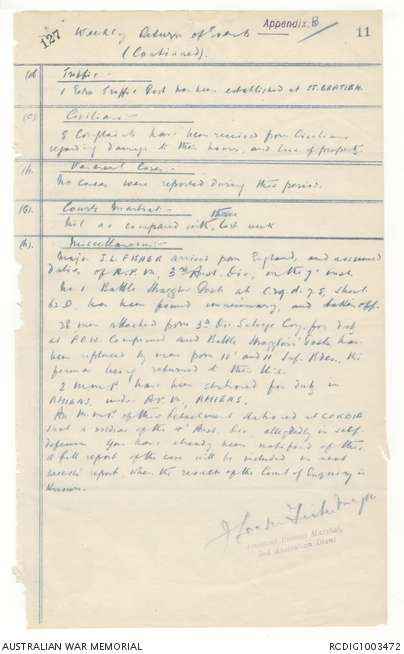 127 Weekly Return of Events Appendix B 11
(Continued).
(d) Traffic:-
1 Extra Traffic Post has been established at ST. GRATIEN.
(e) Civilians:-
5 Complaints have been received from Civilians
regarding damage to their houses, and loss of property.
(f). Venereal Cases:-
No cases were reported during this period.
(G). Courts Martial:-
Nil as compared with three last week
(H). Miscellaneous:-
Major J.L. FISHER arrived from England, and assumed
duties of A.P.M, 3rd Aust. Div, on the 7th inst.
No 1 Battle Straggler Post at Sheet
62D. has been found unnecessary, and taken off.
28 men attached from 3rd Div Salvage Coy. for duty
at P.O.W. Compound and Battle Stragglers Posts have
been replaced by men from 10th and 11th Inf. Bdes, the
former being returned to their Unit.
2 M.M.P. have been stationed for duty in
AMIENS, under A.P.M, AMIENS.
An M.M.P. of this detachment stationed at CORBIE
shot a soldier of the 4th Aust. Div. allegedly in self
defence. You have already been notified of this,
a full report of the case will be included in next
weeks report, when the result of the Court of Enquiry is
known.
Major
Assistant Provost Marshal,
3rd Australian Divn.
AUSTRALIAN WAR MEMORIAL
RCDIG1003472